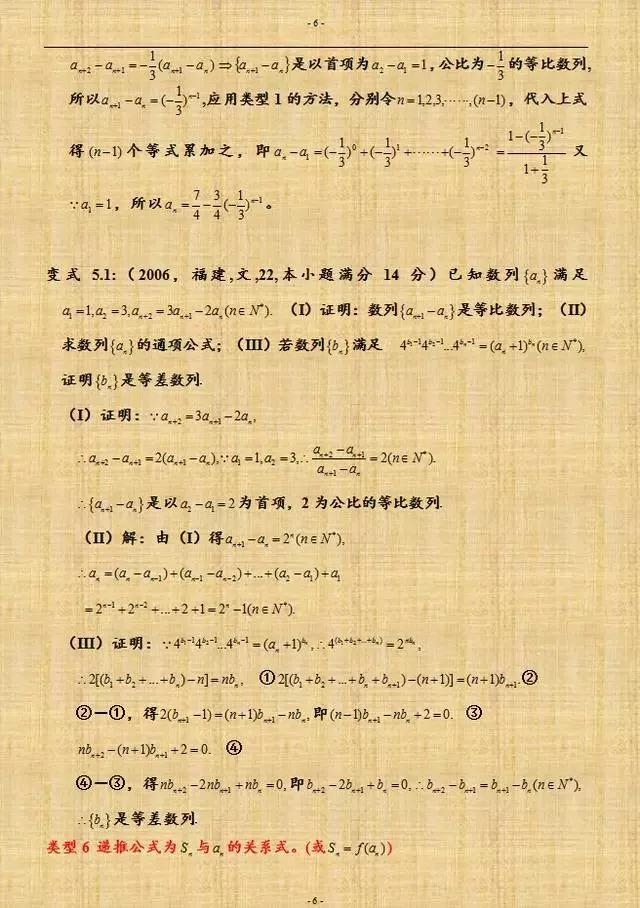 - 6 -
a_{n+2} - a_{n+1} = -\frac{1}{3}(a_{n+1} - a_n) ⇒ {a_{n+1} - a_n}是以首项为a_2 - a_1 = 1，公比为-\frac{1}{3}的等比数列,
所以a_{n+1} - a_n = (-\frac{1}{3})^{n-1},应用类型1的方法，分别令n = 1,2,3,⋯⋯,(n-1)，代入上式
得(n-1)个等式累加之，即a_n - a_1 = (-\frac{1}{3})^0 + (-\frac{1}{3})^1 + ⋯⋯ + (-\frac{1}{3})^{n-2} = \frac{1-(-\frac{1}{3})^{n-1}}{1+\frac{1}{3}} 又
∵a_1 = 1，所以a_n = \frac{7}{4} - \frac{3}{4}(-\frac{1}{3})^{n-1}。
变式 5.1:（2006，福建,文,22,本小题满分 14 分）已知数列{a_n}满足
a_1 = 1, a_2 = 3, a_{n+2} = 3a_{n+1} - 2a_n(n∈N^*). （I）证明：数列{a_{n+1} - a_n}是等比数列；（II）
求数列{a_n}的通项公式；（III）若数列{b_n}满足 4^{b_1-1}4^{b_2-1}...4^{b_n-1} = (a_n+1)^{b_n}(n∈N^*),
证明{b_n}是等差数列.
（I）证明：∵a_{n+2} = 3a_{n+1} - 2a_n,
∴a_{n+2} - a_{n+1} = 2(a_{n+1} - a_n),∵a_1 = 1, a_2 = 3,∴\frac{a_{n+2} - a_{n+1}}{a_{n+1} - a_n} = 2(n∈N^*).
∴{a_{n+1} - a_n}是以a_2 - a_1 = 2为首项，2为公比的等比数列.
（II）解：由（I）得a_{n+1} - a_n = 2^n(n∈N^*),
∴a_n = (a_n - a_{n-1}) + (a_{n-1} - a_{n-2}) + ... + (a_2 - a_1) + a_1
= 2^{n-1} + 2^{n-2} + ... + 2 + 1 = 2^n - 1(n∈N^*).
（III）证明：∵4^{b_1-1}4^{b_2-1}...4^{b_n-1} = (a_n+1)^{b_n},∴4^{(b_1+b_2+...+b_n)} = 2^{nb_n},
∴2[(b_1+b_2+...+b_n) - n] = nb_n, ①2[(b_1+b_2+...+b_n+b_{n+1}) - (n+1)] = (n+1)b_{n+1}.②
②—①，得2(b_{n+1} - 1) = (n+1)b_{n+1} - nb_n,即(n-1)b_{n+1} - nb_n + 2 = 0. ③
nb_{n+2} - (n+1)b_{n+1} + 2 = 0. ④
④—③，得nb_{n+2} - 2nb_{n+1} + nb_n = 0,即b_{n+2} - 2b_{n+1} + b_n = 0,∴b_{n+2} - b_{n+1} = b_{n+1} - b_n(n∈N^*),
∴{b_n}是等差数列.
类型6 递推公式为S_n与a_n的关系式。(或S_n = f(a_n))
- 6 -